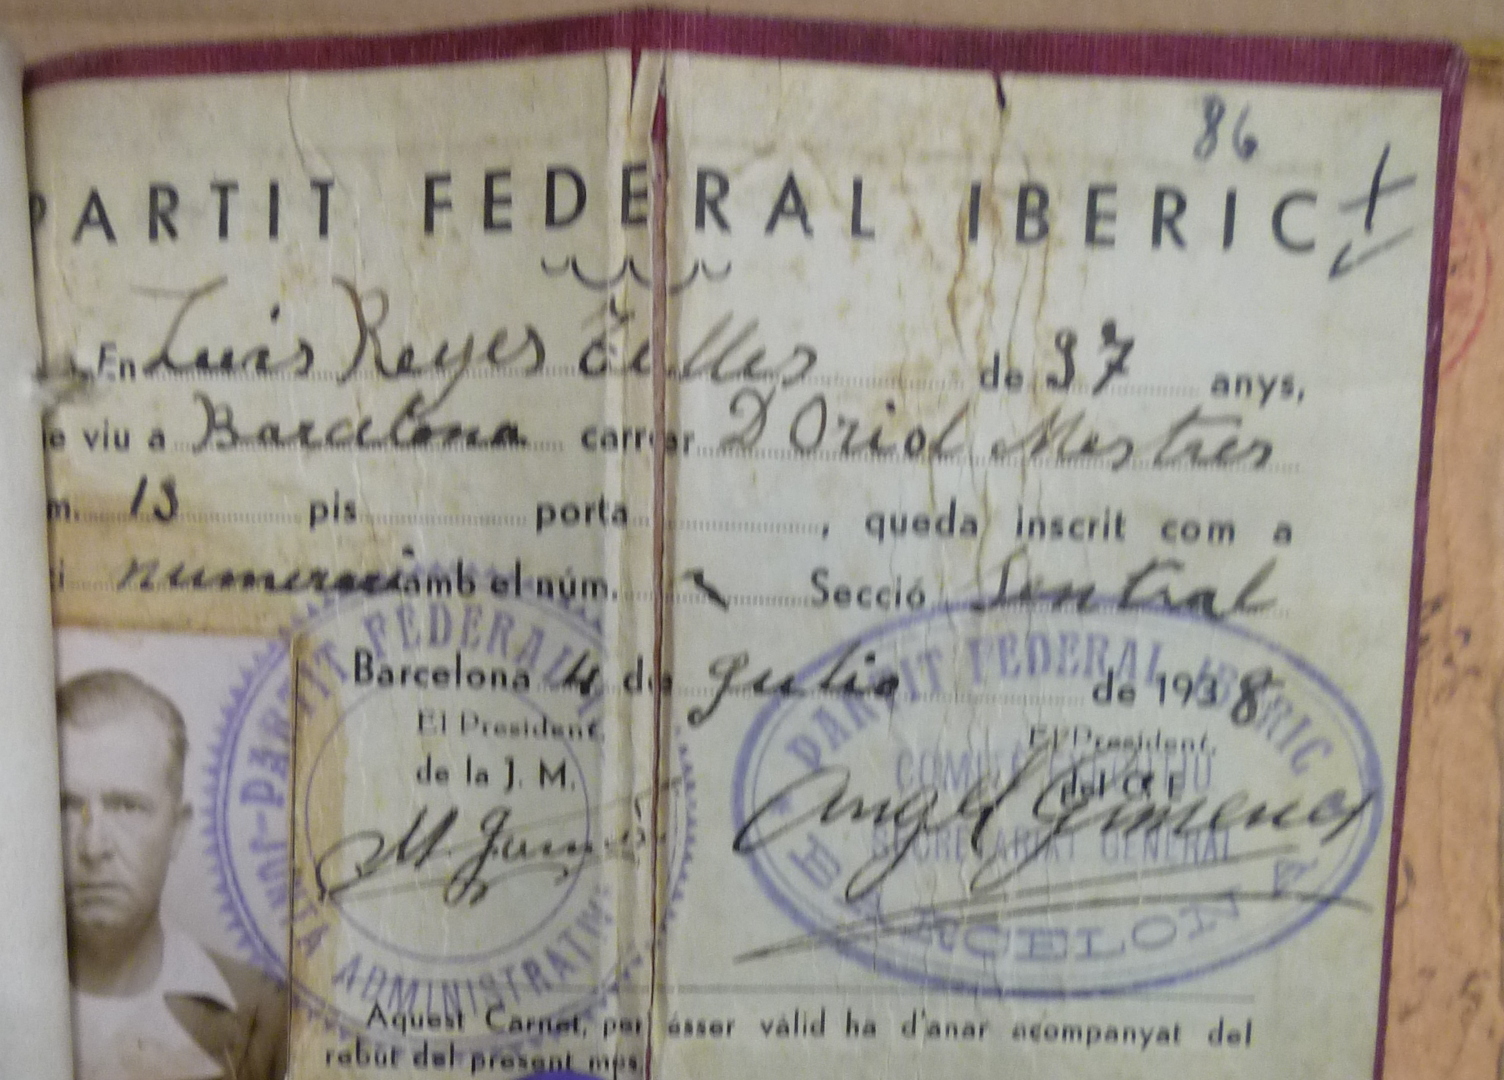 86
PARTIT FEDERAL IBERIC
En Luis Reyes Telles de 37 anys,
e viu a Barcelona carrer D Oriol Mestres
m. 13 pis porta , queda inscrit com a
i numerari amb el núm. Secció Sentral
Barcelona 4 de Julio de 1938
El President El President
de la J. M. del C. E.
M. Angel Gimenez
PARTIT FEDERAL
JUNTA ADMINISTRATIVA
PARTIT FEDERAL IBERIC
COMITE EXECUTIU
SECRETARIAT GENERAL
BARCELONA
Aquest Carnet, per ésser vàlid ha d'anar acompanyat del
rebut del present mes.